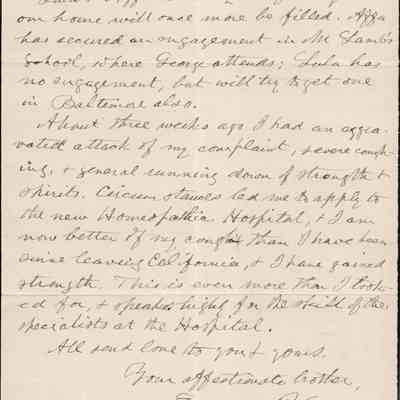 our home will once more be filled. Agga
has secured an engagement in Mr Lamb's
School, where George attends; Lulu has
no engagement, but will try to get one
in Baltimore also.
About three weeks ago I had an aggra-
vated attack of my complaint, severe cough-
ing, & general running down of strength &
spirits. Circumstances led me to apply to
the new Homeopathic Hospital, & I am
now better of my cough than I have been
since leaving California, & I have gained
strength. This is even more than I look-
ed for, & speaks high for the skill of the
specialists at the Hospital.
All send love to you & yours.
Your affectionate brother,